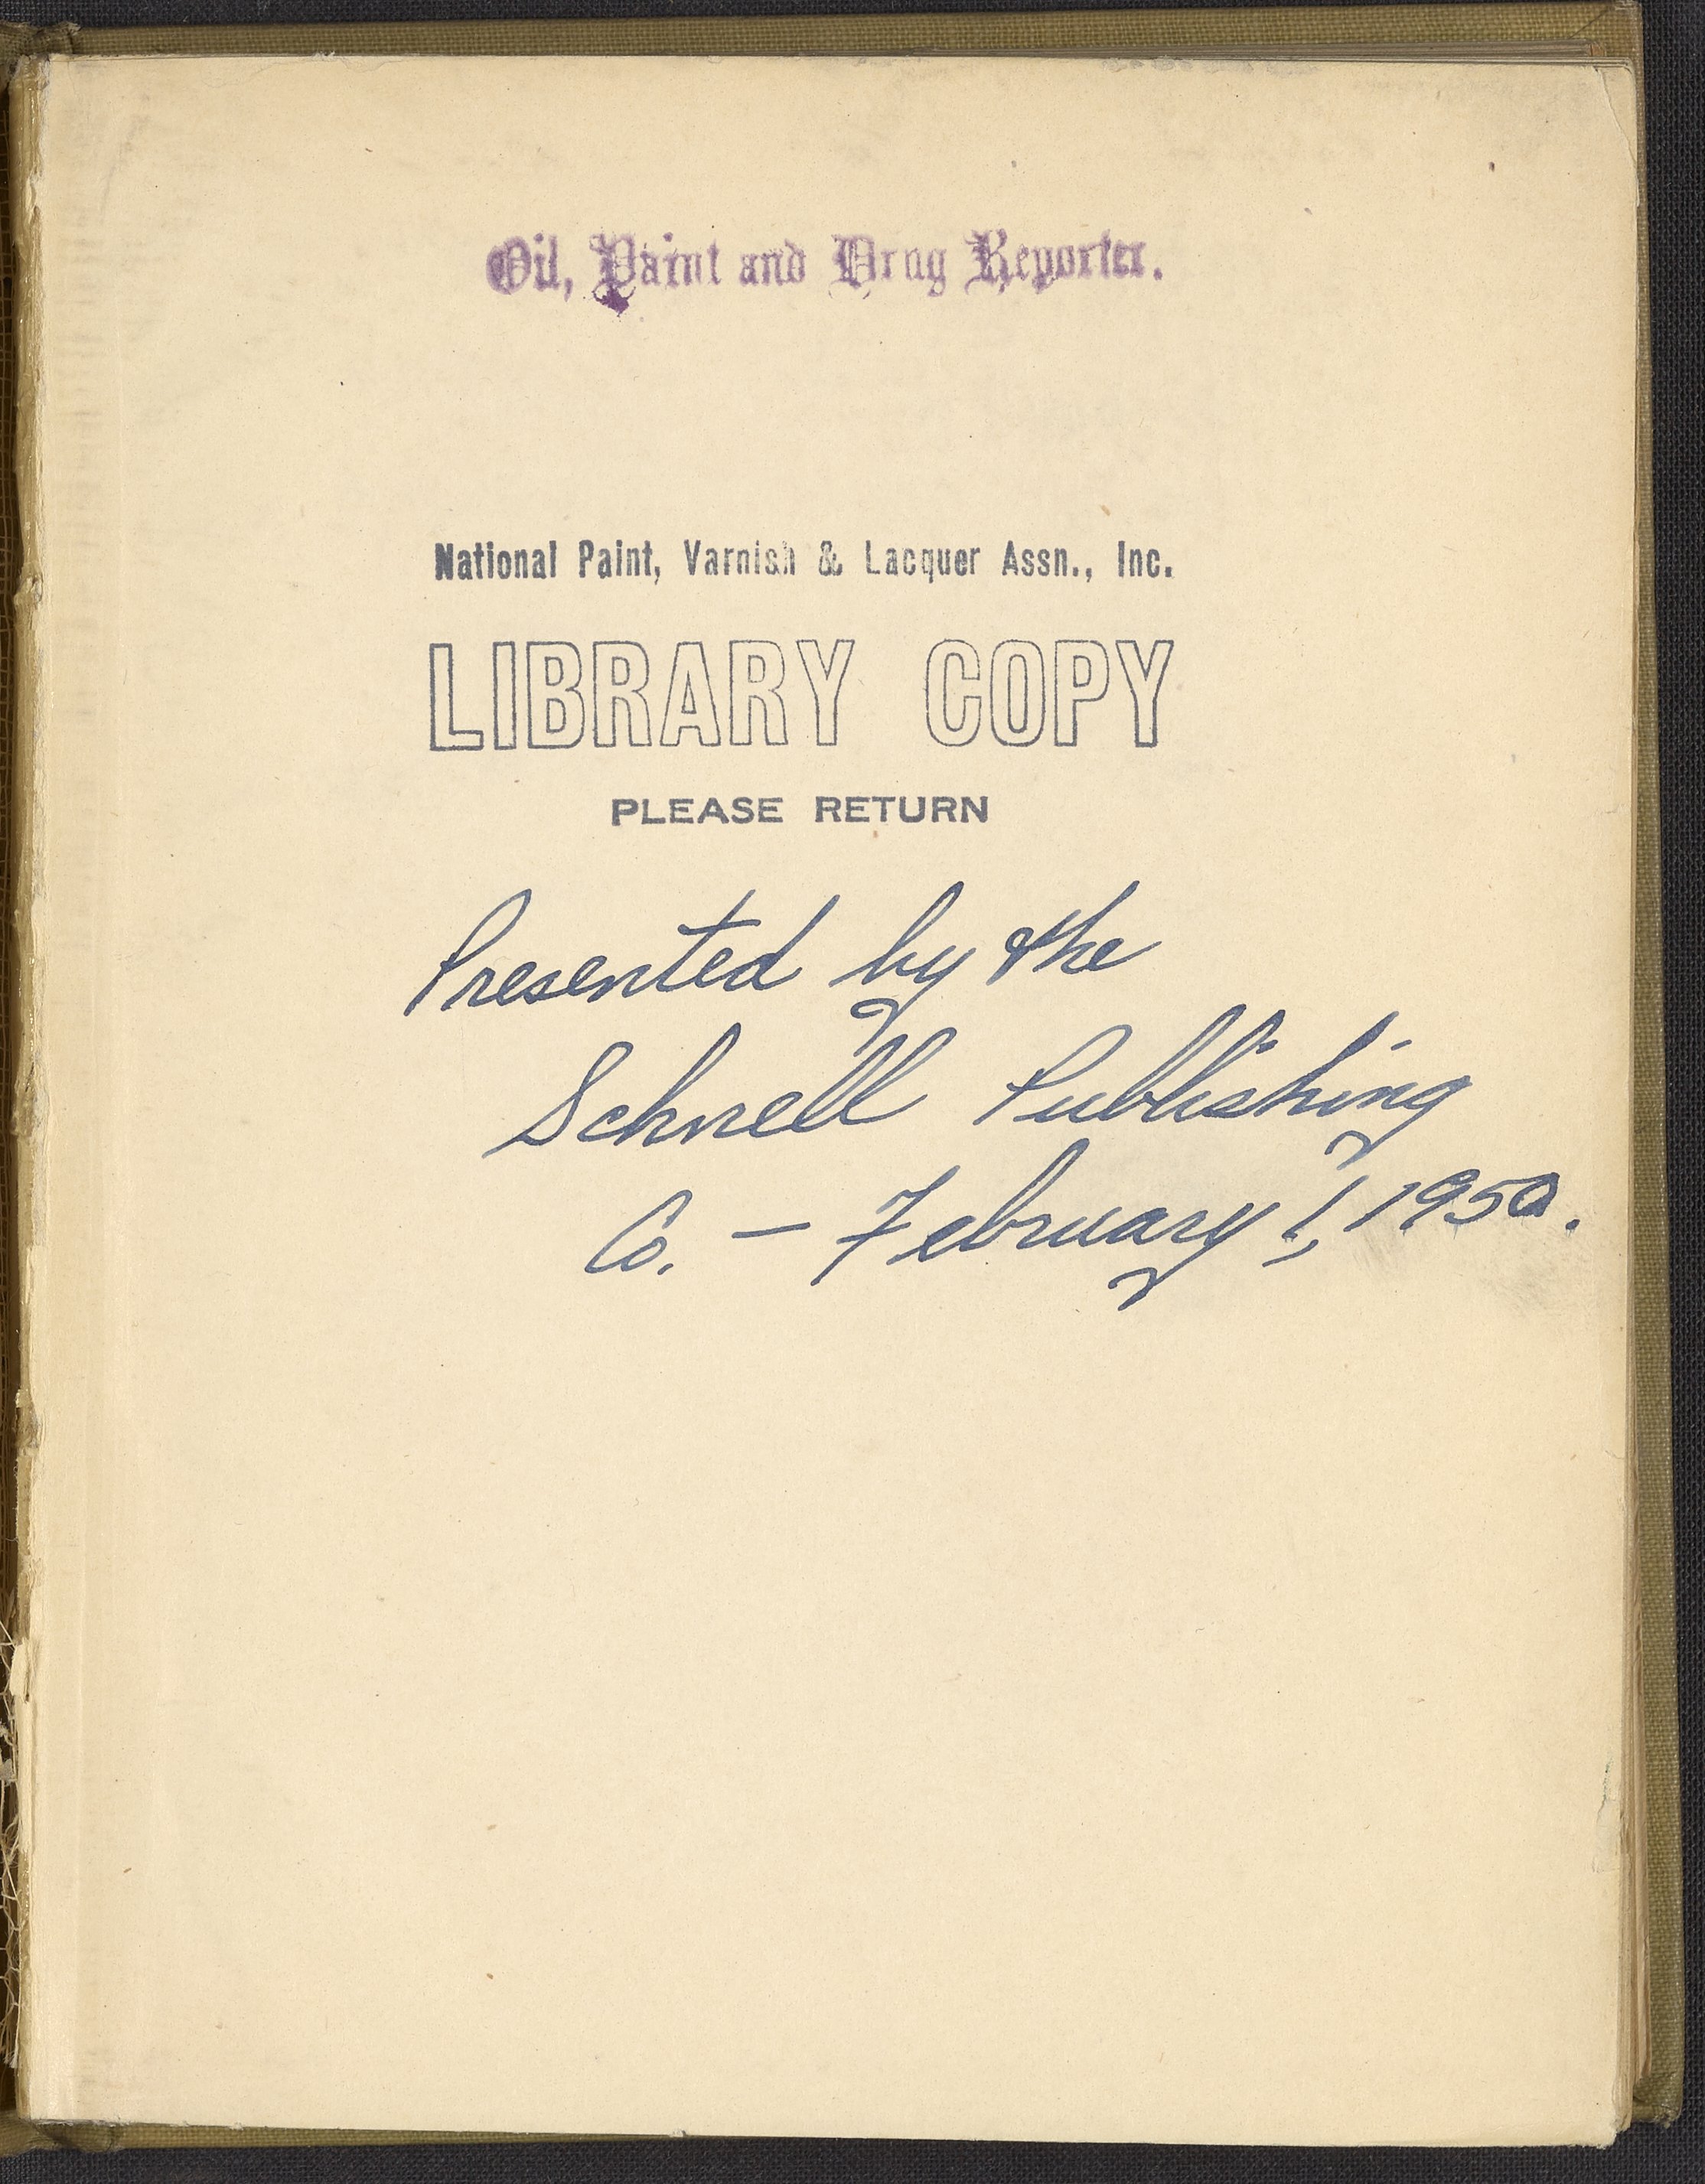 Oil, Paint and Drug Reporter.
National Paint, Varnish & Lacquer Assn., Inc.
LIBRARY COPY
PLEASE RETURN
Presented by the
Schnell Publishing
Co. — February 1, 1950.